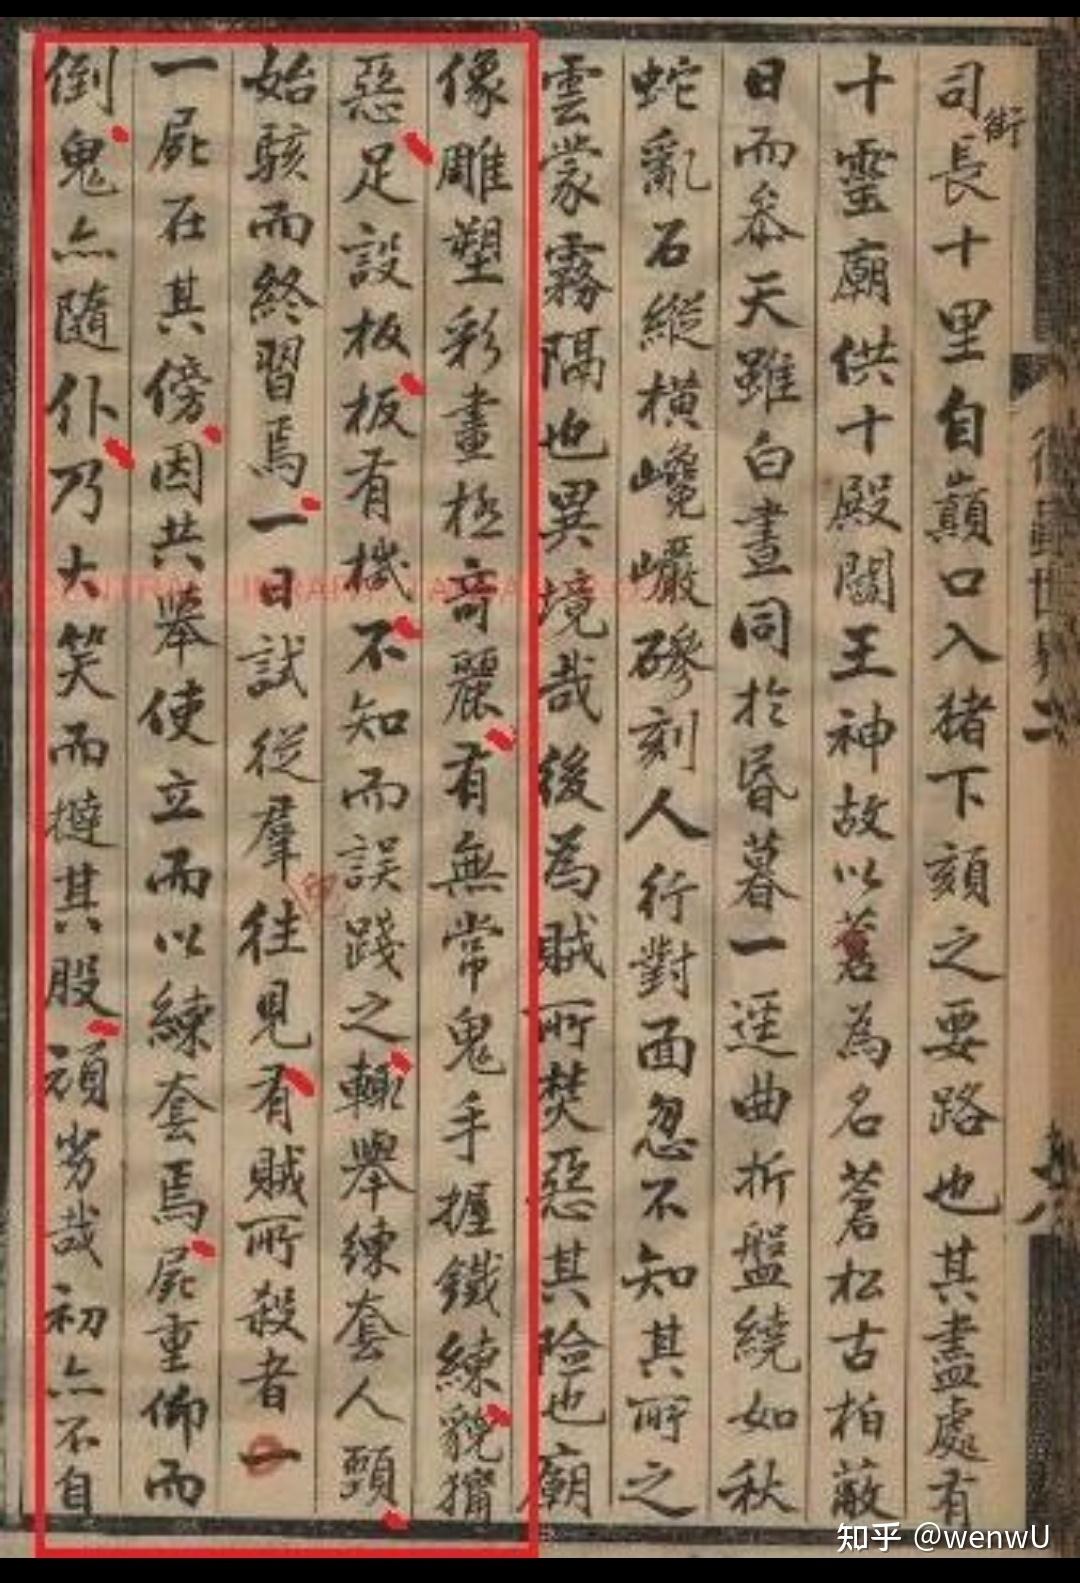 司衙長十里自巔口入猪下頦之要路也其盡處有
十靈廟供十殿閻王神故以蒼為名蒼松古柏蔽
日而參天雖白晝同於昏暮一逕曲折盤繞如秋
蛇亂石縱橫巉巖磣刻人行對面忽不知其所之
雲蒙霧隔也異境哉後為賊所焚惡其險也廟
像雕塑彩畫極奇麗有無常鬼手握鐵練貌獰
惡足設板板有機不知而誤踐之輒舉練套人頸
始駭而終習焉一日試從羣往見有賊所殺者一
一屍在其傍因共舉使立而以練套焉屍重仰而
倒鬼亦隨仆乃大笑而撻其股頑劣哉初亦不自
知乎 @wenwU